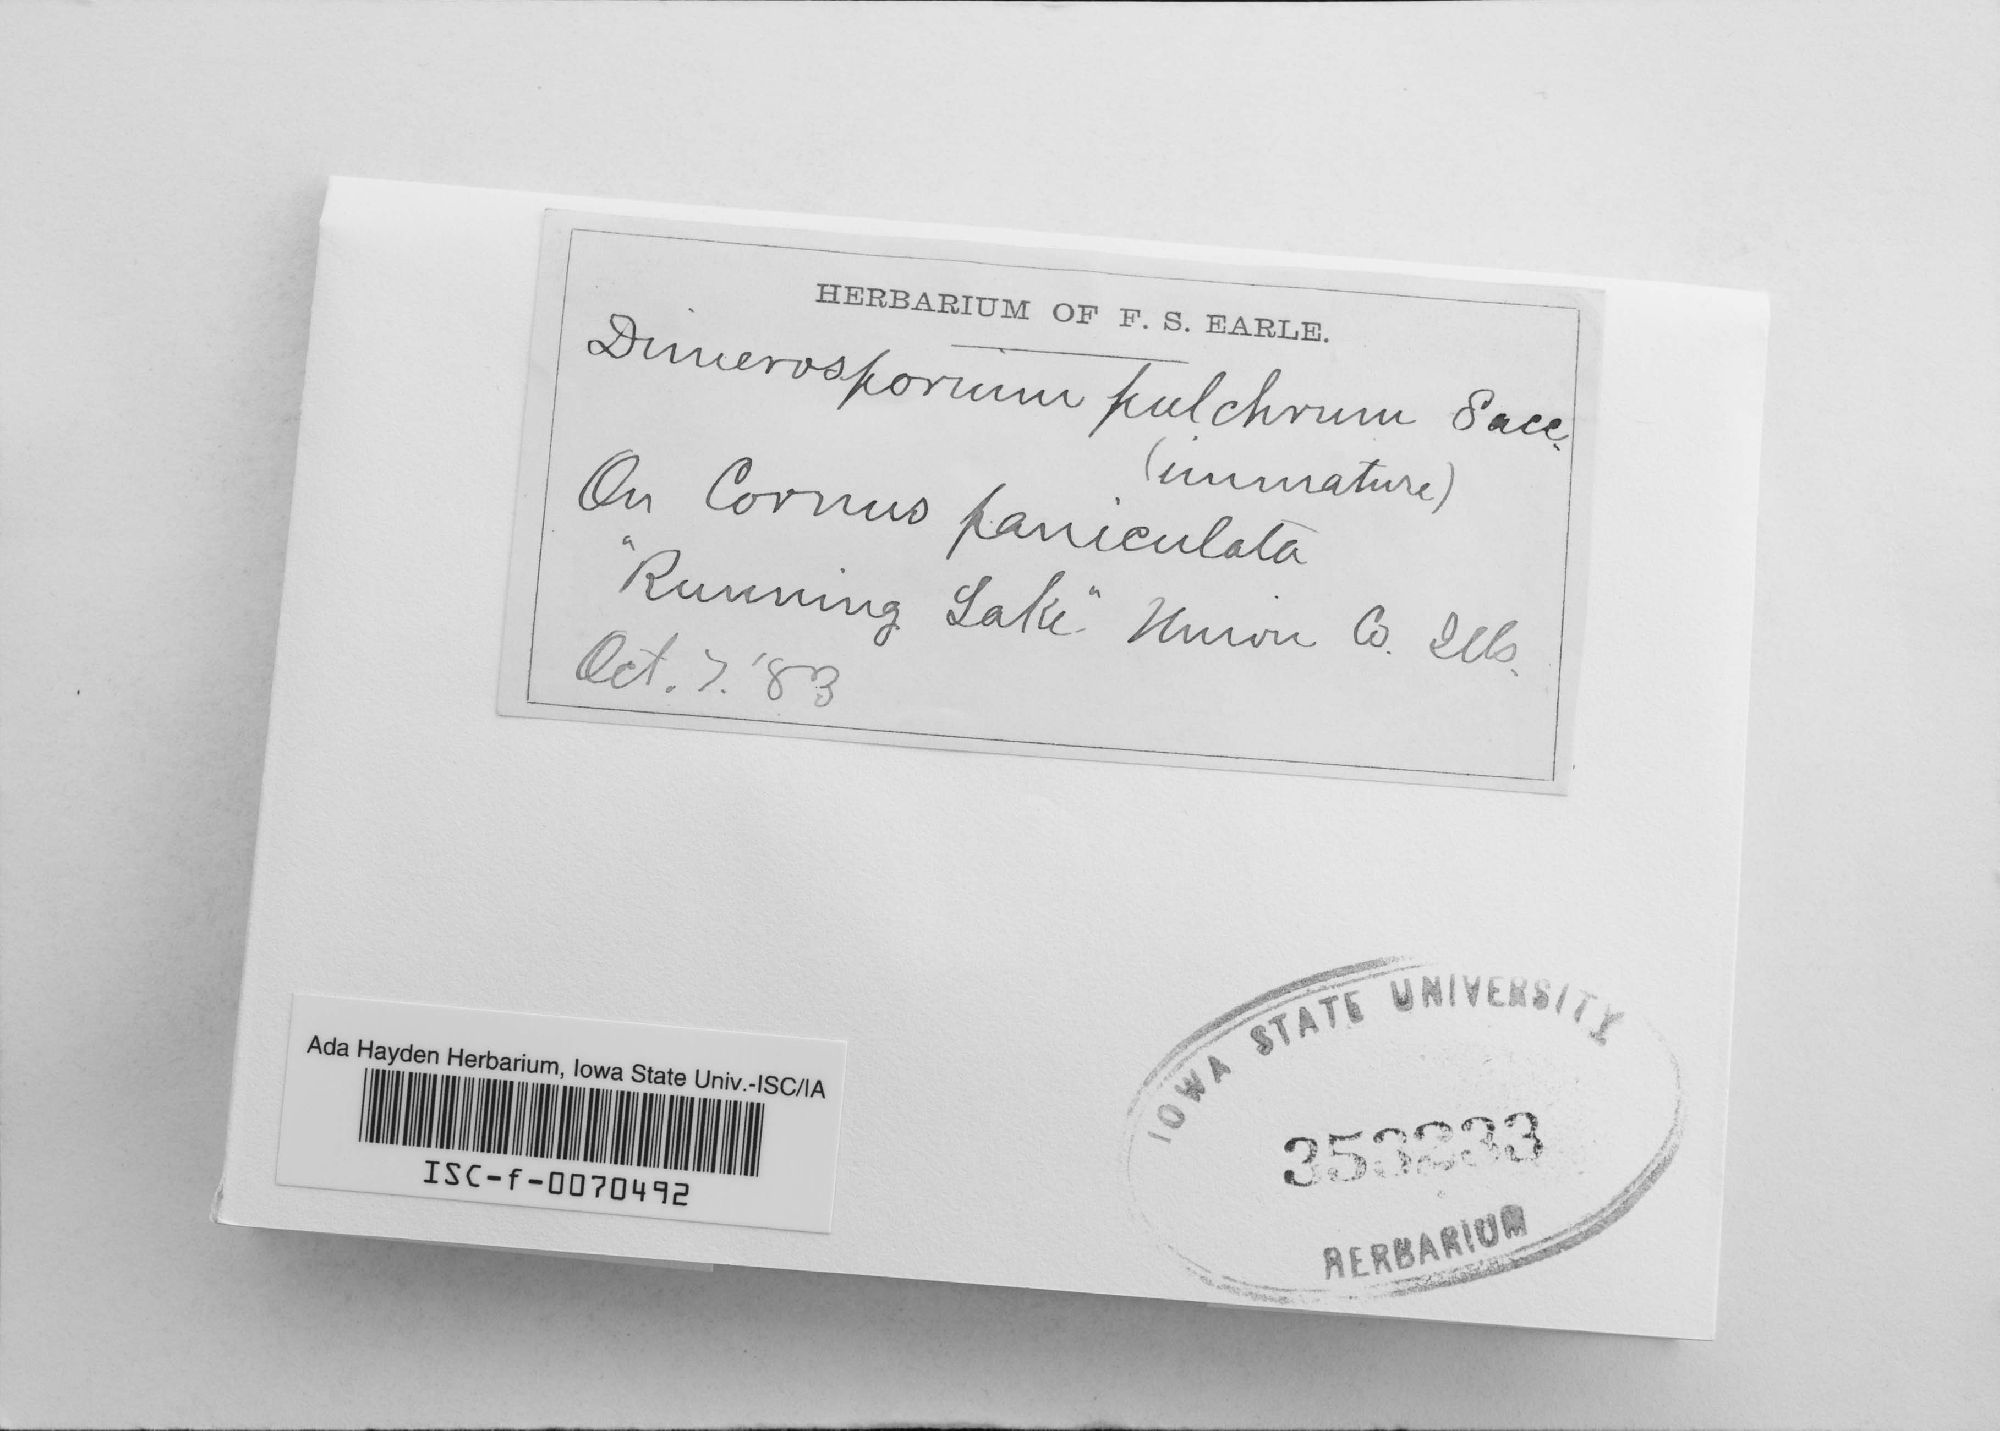 HERBARIUM OF F. S. EARLE.
Dimerosporium pulchrum Sacc.
(immature)
On Cornus paniculata
"Running Lake" Union Co. Ills.
Oct. 7. '83
Ada Hayden Herbarium, Iowa State Univ.-ISC/IA
ISC-f-0070492
IOWA STATE UNIVERSITY
HERBARIUM